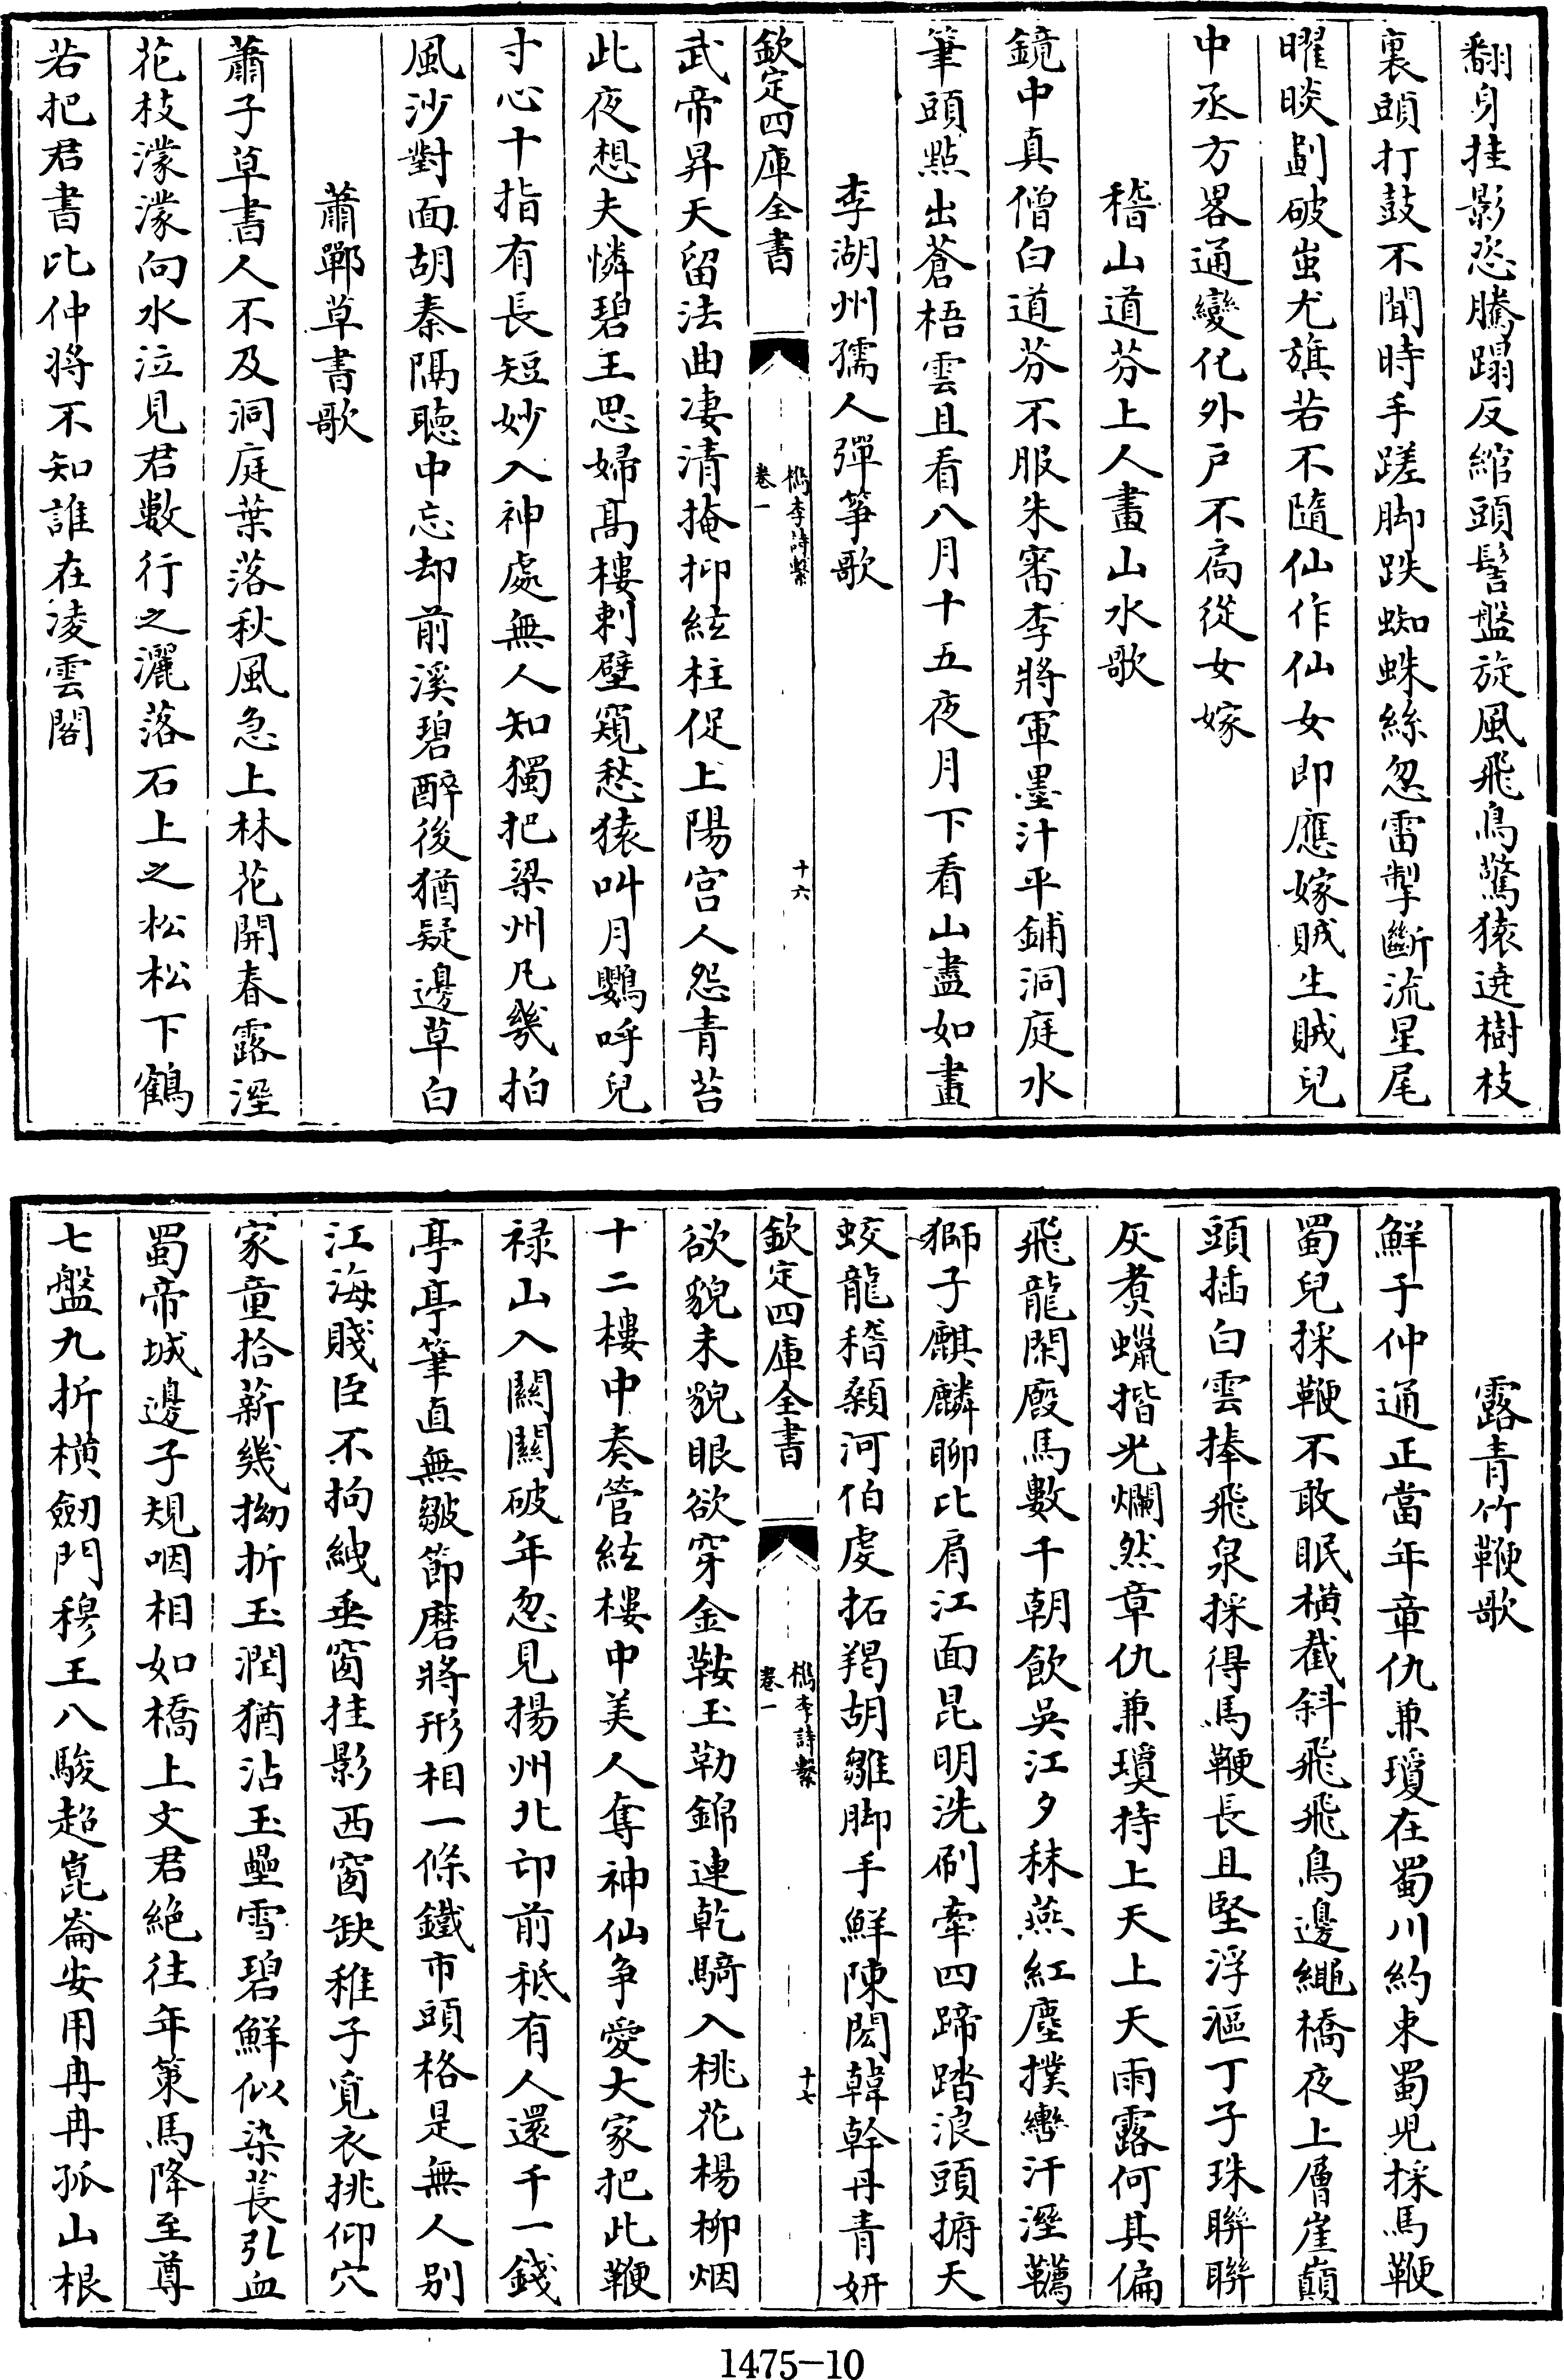 翻身挂影恣騰蹋反綰頭髻盤旋風飛鳥驚猿遶樹枝
裏頭打鼓不聞時手蹉脚跌蜘蛛絲忽雷掣斷流星尾
曜睒劃破蚩尤旗若不隨仙作仙女即應嫁賊生賊兒
中丞方畧通變化外戸不扄從女嫁
稽山道芬上人畫山水歌
鏡中真僧白道芬不服朱審李將軍墨汁平鋪洞庭水
筆頭㸃出蒼梧雲且看八月十五夜月下看山盡如畫
李湖州孺人彈筝歌
欽定四庫全書
檇李詩繫
卷一
十六
武帝昇天留法曲凄清掩抑絃柱促上陽宫人怨青苔
此夜想夫憐碧玉思婦髙樓刺壁窺愁猿叫月鸚呼兒
寸心十指有長短妙入神處無人知獨把梁州凡幾拍
風沙對面胡秦隔聽中忘却前溪碧醉後猶疑邊草白
蕭鄲草書歌
蕭子草書人不及洞庭葉落秋風急上林花開春露溼
花枝濛濛向水泣見君數行之灑落石上之松松下鶴
若把君書比仲將不知誰在凌雲閣
露青竹鞭歌
鮮于仲通正當年章仇兼瓊在蜀川約束蜀兒採馬鞭
蜀兒採鞭不敢眠横截斜飛飛鳥邊繩橋夜上層崖巔
頭插白雲捧飛泉採得馬鞭長且堅浮漚丁子珠聯聯
灰煑蠟揩光爛然章仇兼瓊持上天上天雨露何其偏
飛龍閑廏馬數千朝飲吳江夕秣燕紅塵撲轡汗溼韉
獅子麒麟聊比肩江面昆明洗刷牽四蹄踏浪頭捬天
蛟龍稽顙河伯虔拓羯胡雛脚手鮮陳閎韓幹丹青妍
欽定四庫全書
檇李詩繫
卷一
十七
欲貌未貌眼欲穿金鞍玉勒錦連乾騎入桃花楊柳烟
十二樓中奏管絃樓中美人奪神仙争愛大家把此鞭
禄山入關關破年忽見揚州北邙前秪有人還千一錢
亭亭筆直無皺節磨將形相一條鐵市頭格是無人别
江海賤臣不拘紲垂窗挂影西窗缺稚子覓衣挑仰穴
家童拾薪幾拗折玉潤猶沾玉壘雪碧鮮似染萇引血
蜀帝城邊子規咽相如橋上文君絶往年策馬降至尊
七盤九折横劒門穆王八駿超崑崙安用冉冉孤山根
1475-10